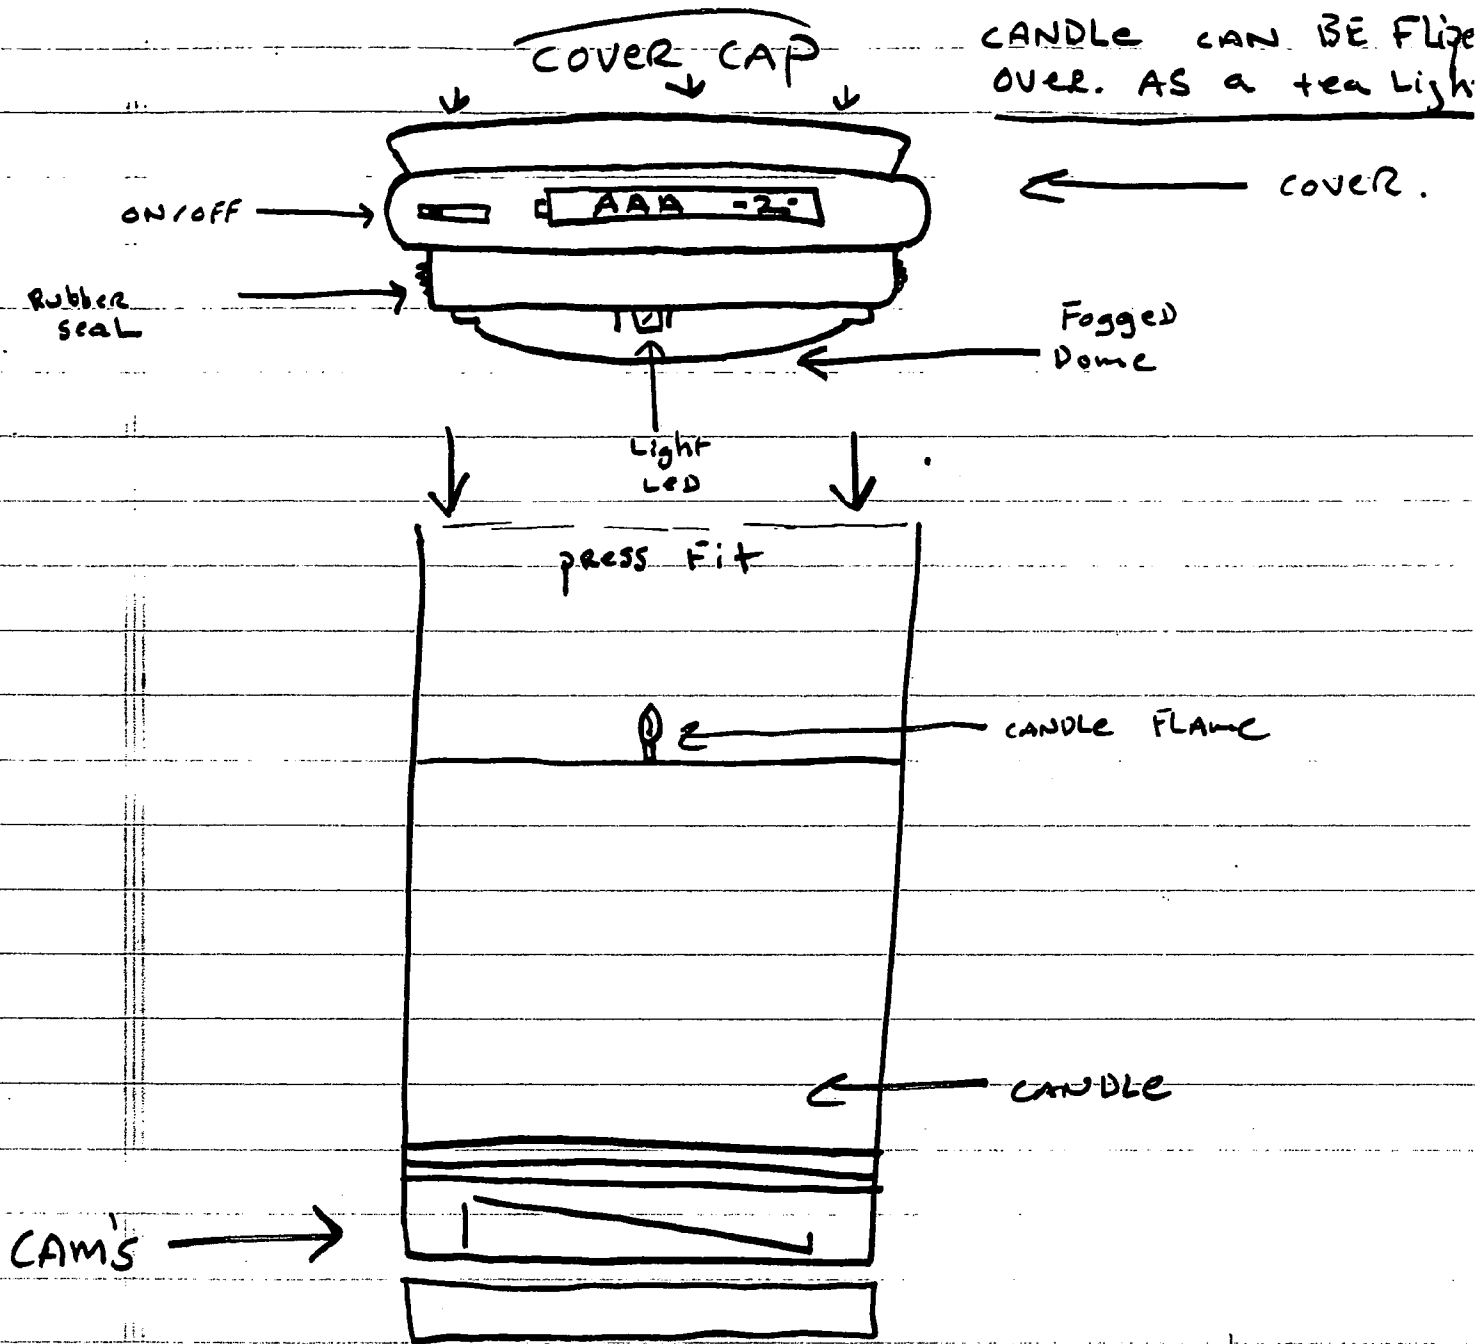 COVER CAP
CANDLE CAN BE Flipe
OVER. AS a tea Ligh
COVER.
ON/OFF
AAA -2-
Rubber
seal
Fogged
Dome
Light
LED
press Fit
CANDLE FLAME
CANDLE
CAM'S